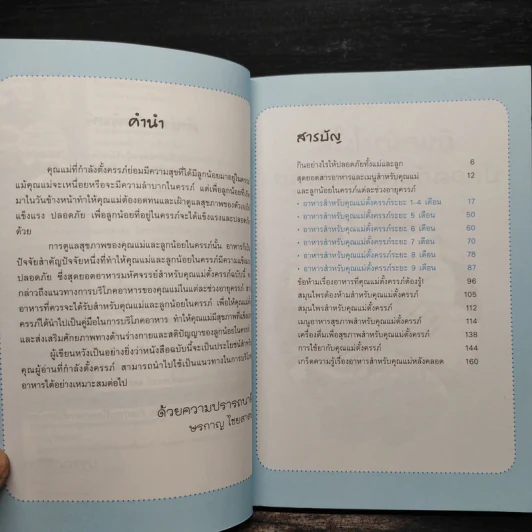 คำนำ
คุณแม่ที่กำลังตั้งครรภ์ย่อมมีความสุขที่ได้มีลูกน้อยมาอยู่ในครรภ์
แม้คุณแม่จะเหนื่อยหรือจะมีความลำบากในครรภ์ แต่เพื่อลูกที่
มาในวันข้างหน้าทำให้คุณแม่ต้องอดทนและเฝ้าดูแลสุขภาพของตัวเอง
แข็งแรง ปลอดภัย เพื่อลูกน้อยที่อยู่ในครรภ์จะได้แข็งแรงและปลอดภัย
ด้วย
การดูแลสุขภาพของคุณแม่และลูกน้อยในครรภ์นั้น อาหารก็
ปัจจัยสำคัญปัจจัยหนึ่งที่ทำให้คุณแม่และลูกน้อยในครรภ์แข็งแรง
ปลอดภัย ซึ่งสุดยอดอาหารมหัศจรรย์สำหรับคุณแม่ตั้งครรภ์ฉบับนี้
กล่าวถึงแนวทางการบริโภคอาหารของคุณแม่ในแต่ละช่วงอายุครรภ์
อาหารที่ควรจะได้รับสำหรับคุณแม่และลูกน้อยในครรภ์ เพื่อให้คุณแม่
ครรภ์ได้นำไปเป็นคู่มือในการบริโภคอาหาร ทำให้มีสุขภาพแข็งแรง
และส่งเสริมศักยภาพทางด้านร่างกายและสติปัญญาของลูกน้อยในครรภ์
ผู้เขียนหวังเป็นอย่างยิ่งว่าหนังสือฉบับนี้จะเป็นประโยชน์สำหรับ
คุณผู้อ่านที่กำลังตั้งครรภ์ สามารถนำไปใช้เป็นแนวทางในการบริโภค
อาหารได้อย่างเหมาะสมต่อไป
ด้วยความปรารถนา
ษรกาญ ไชย
สารบัญ
กินอย่างไรให้ปลอดภัยทั้งแม่และลูก 6
สุดยอดสารอาหารและเมนูสำหรับคุณแม่ 12
และลูกน้อยในครรภ์แต่ละช่วงอายุครรภ์
• อาหารสำหรับคุณแม่ตั้งครรภ์ระยะ 1-4 เดือน 17
• อาหารสำหรับคุณแม่ตั้งครรภ์ระยะ 5 เดือน 50
• อาหารสำหรับคุณแม่ตั้งครรภ์ระยะ 6 เดือน 60
• อาหารสำหรับคุณแม่ตั้งครรภ์ระยะ 7 เดือน 70
• อาหารสำหรับคุณแม่ตั้งครรภ์ระยะ 8 เดือน 78
• อาหารสำหรับคุณแม่ตั้งครรภ์ระยะ 9 เดือน 87
ข้อห้ามเรื่องอาหารที่คุณแม่ตั้งครรภ์ต้องรู้! 96
สมุนไพรต้องห้ามสำหรับคุณแม่ตั้งครรภ์ 105
สมุนไพรสำหรับคุณแม่ตั้งครรภ์ 112
เมนูอาหารสุขภาพสำหรับคุณแม่ตั้งครรภ์ 114
เครื่องดื่มเพื่อสุขภาพสำหรับคุณแม่ตั้งครรภ์ 138
การใช้ยากับคุณแม่ตั้งครรภ์ 144
เกร็ดความรู้เรื่องอาหารสำหรับคุณแม่หลังคลอด 160